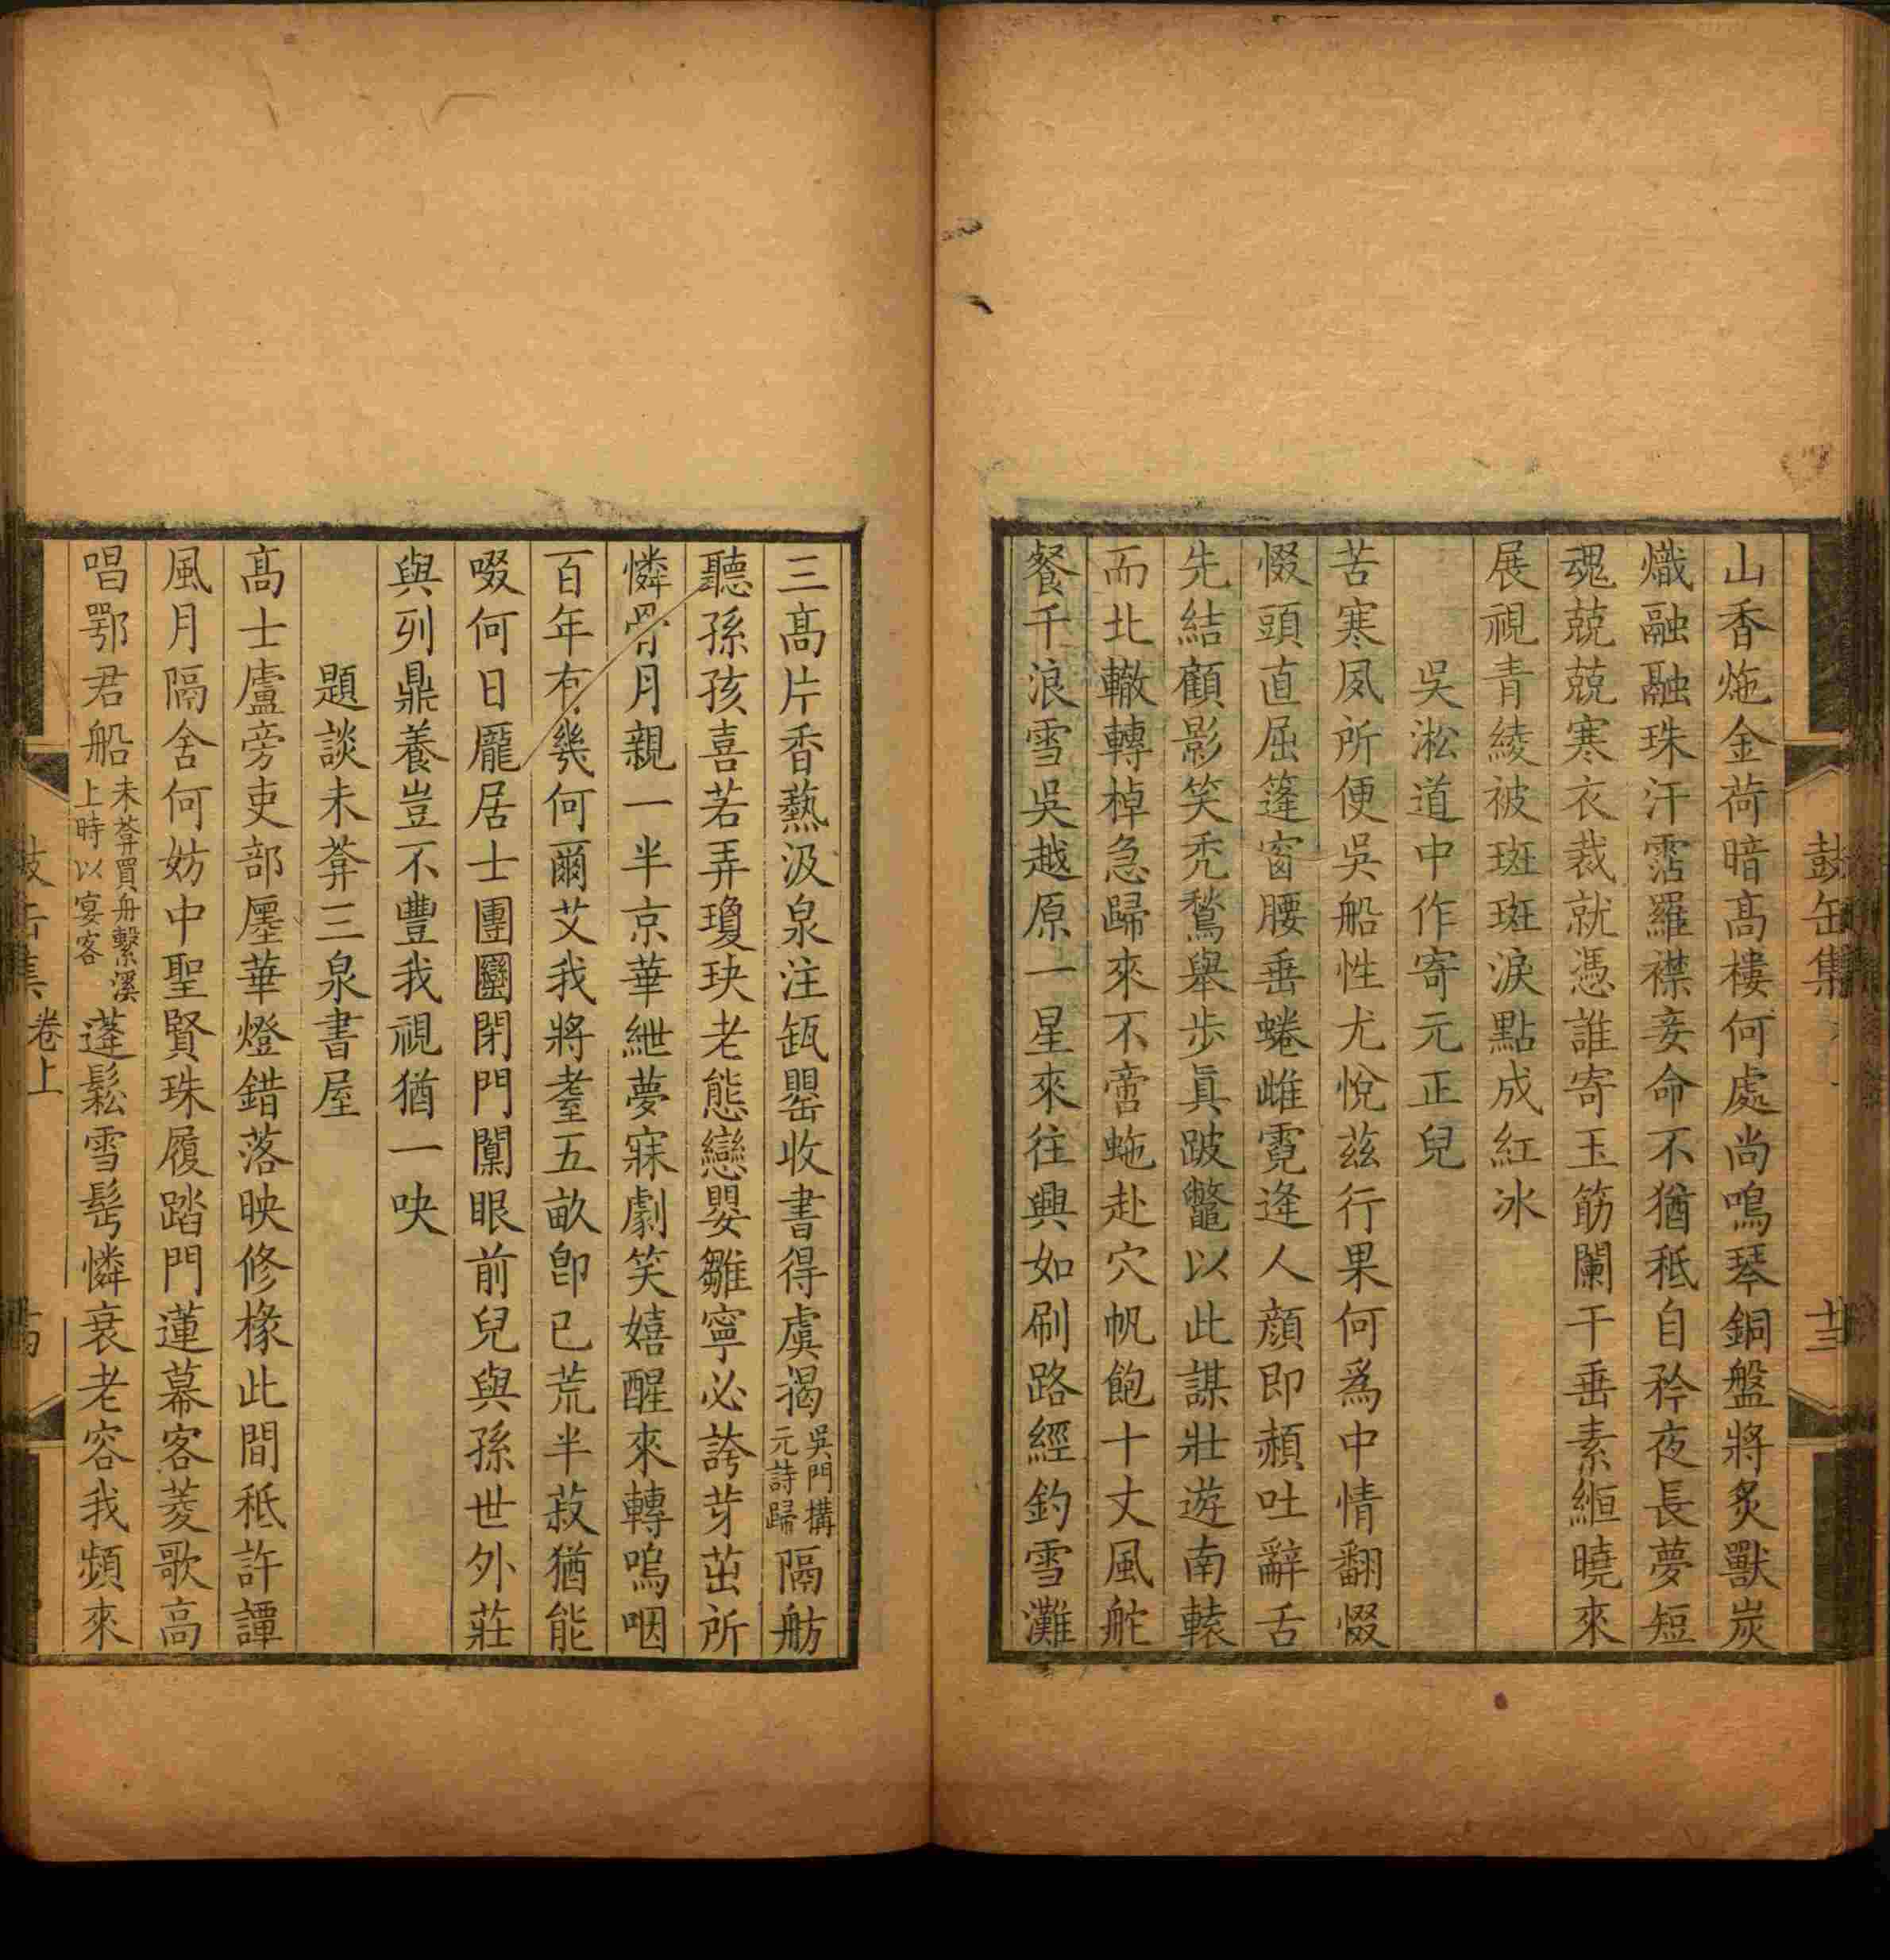 鼓缶集 卄三
山香炧金荷暗高樓何處尚鳴琴銅盤將炙獸炭
熾融融珠汗霑羅襟妾命不猶秖自矜夜長夢短
魂兢兢寒衣裁就憑誰寄玉筯闌干垂素緪曉來
展視青綾被斑斑淚點成紅冰
吳淞道中作寄元正兒
苦寒夙所便吳船性尤悅茲行果何爲中情翻惙
惙頭直屈篷窗腰垂蜷雌霓逢人顔即頳吐辭舌
先結顧影笑禿鶖舉步眞跛鼈以此謀壯遊南轅
而北轍轉棹急歸來不啻虵赴穴帆飽十丈風舵
餐千浪雪吳越原一星來往興如刷路經釣雪灘
三高片香爇汲泉注瓿罌收書得虞揭吳門購元詩歸隔舫
聽孫孩喜若弄瓊玦老態戀嬰雛寧必誇芽茁所
憐骨月親一半京華紲夢寐劇笑嬉醒來轉嗚咽
百年有幾何爾艾我將耋五畝卽已荒半菽猶能
啜何日龐居士團圞閉門闑眼前兒與孫世外莊
與列鼎養豈不豐我視猶一吷
題談未葊三泉書屋
高士廬旁吏部廛華燈錯落映修椽此間秖許譚
風月隔舍何妨中聖賢珠履踏門蓮幕客菱歌高
唱鄂君船未葊買舟繫溪上時以宴客蓬鬆雪髩憐衰老容我頻來
鼓缶集 卷上